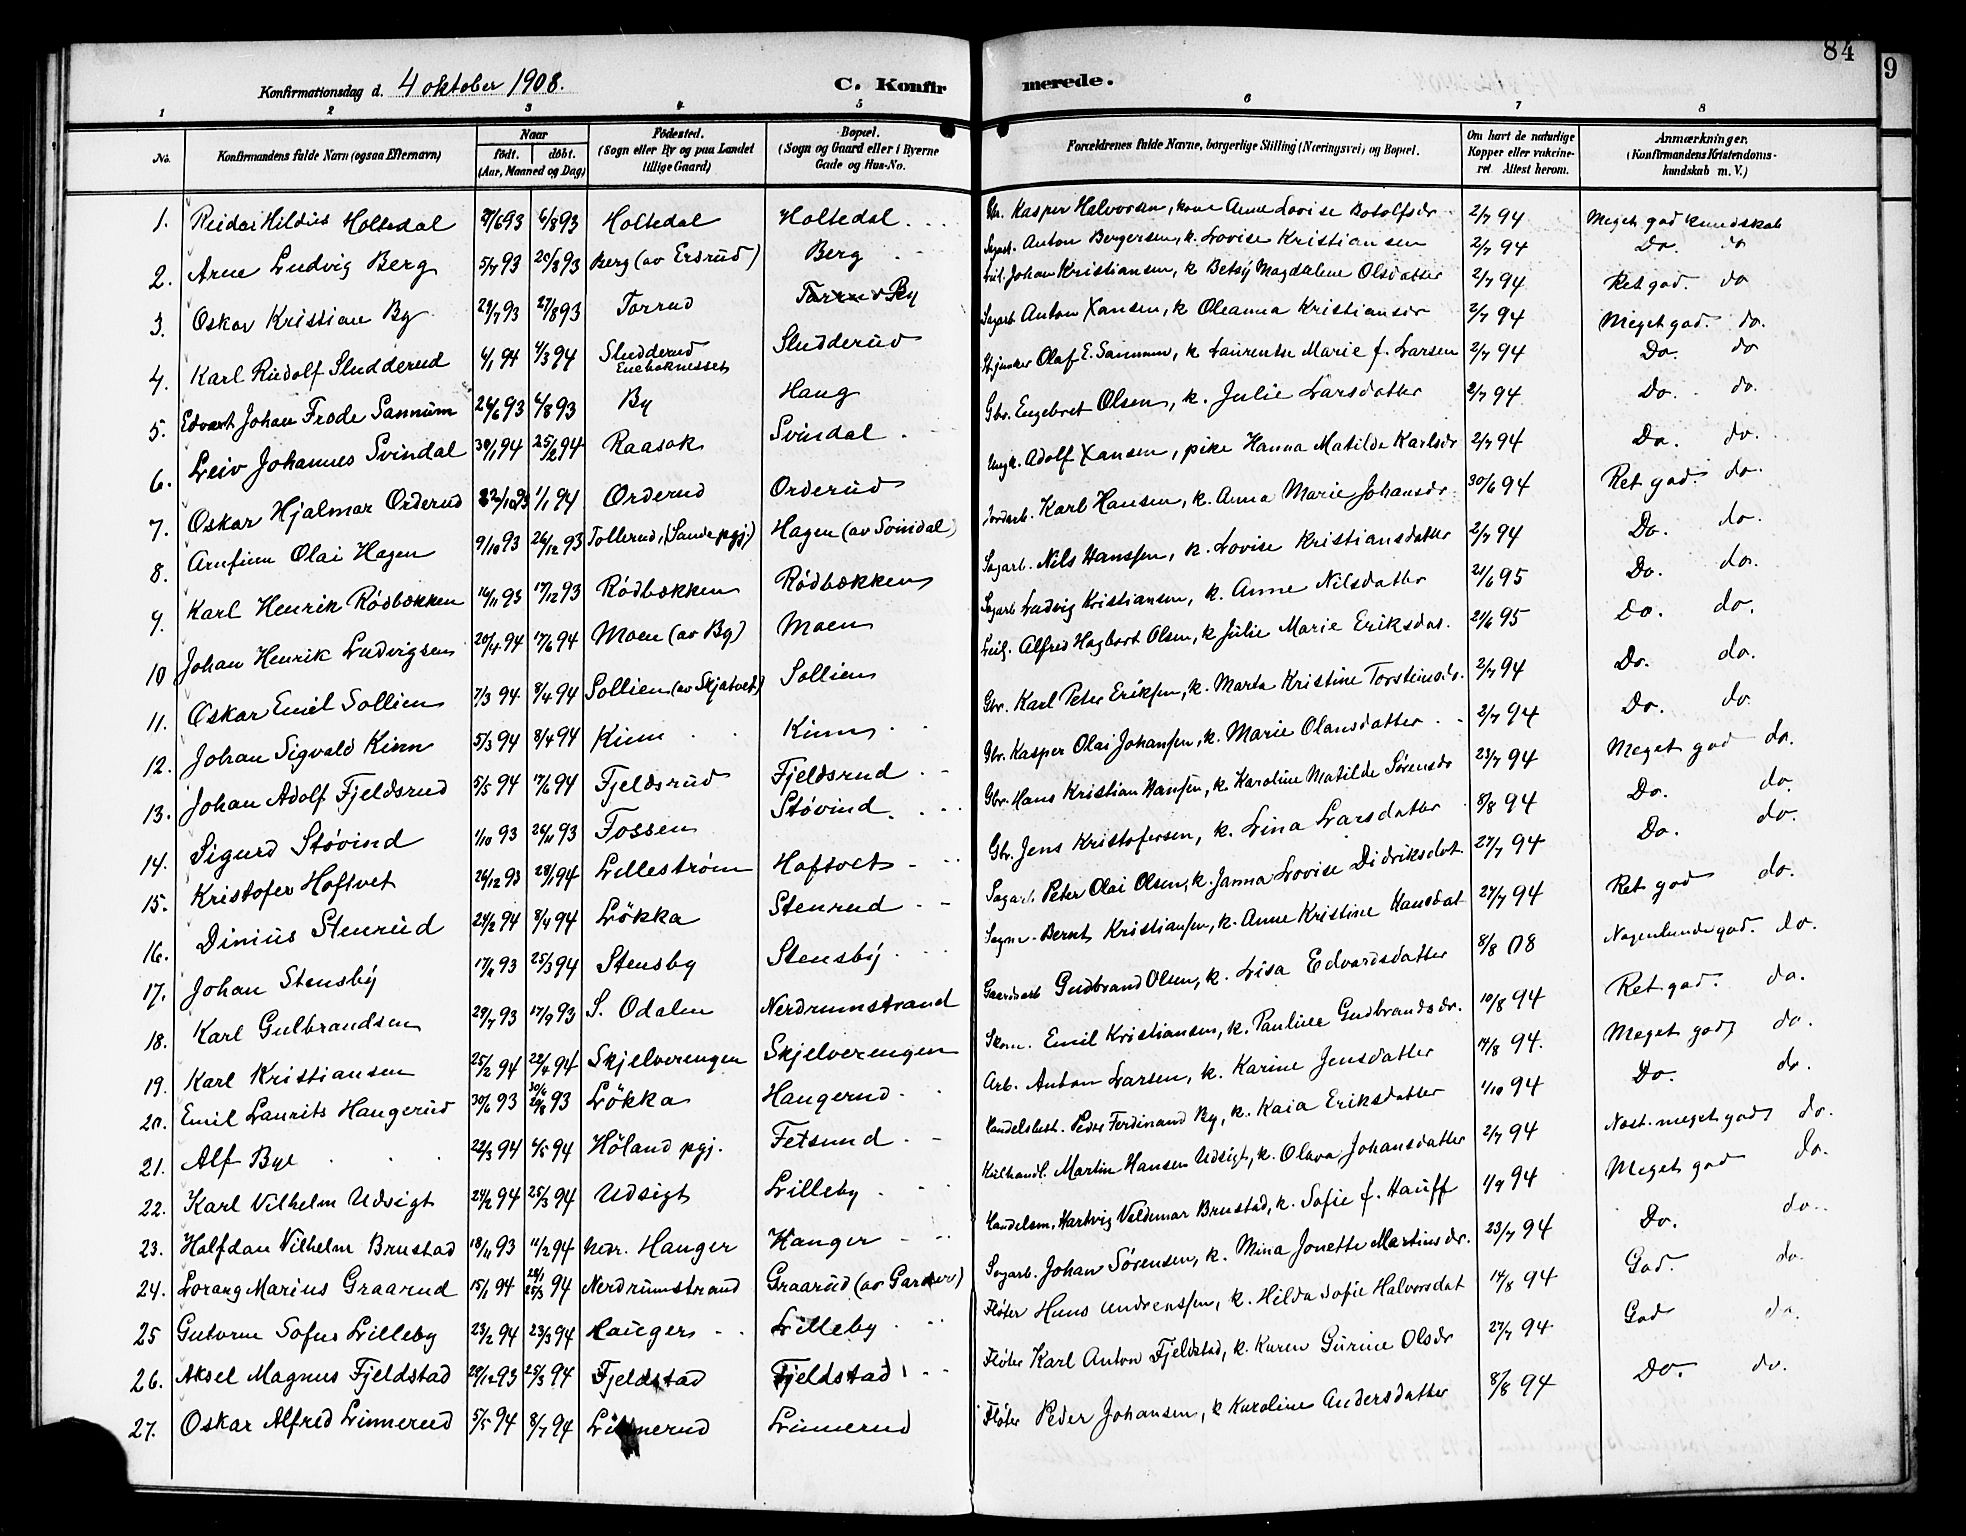 84
9
Konfirmationsdag d. 4 oktober 1908.
C. Konfirmerede.
1 2 3 4 5 6 7 8
No.
Konfirmandens fulde Navn (ogsaa Efternavn)
Naar
født. døbt.
(Aar, Maaned og Dag)
Fødested.
(Sogn eller By og paa Landet
tillige Gaard)
Bopæl.
(Sogn og Gaard eller i Byerne
Gade og Hus-No.
Forældrenes fulde Navne, borgerlige Stilling (Næringsvei) og Bopæl.
Om havt de naturlige
Kopper eller vakcine-
ret Attest herom.
Anmærkninger.
(Konfirmandens Kristendoms-
kundskab m. V.)
1. Reidar Hildus Holtedal 6/8 93 Holtedal Holtedal Gbr. Kasper Halvorsen, kone Anne Lovise Botolfsdr. 2/7 94 Meget god kundskab
2. Arne Ludvig Berg 5/7 93 20/8 93 Berg (av Erdrud) Berg Sagarb. Anton Bergersen, k. Lovise Kristiansen 2/7 94 Do. do
3. Oskar Kristian By 29/7 93 27/8 93 Torrud By Johan Kristiansen, k Betsy Magdalene Olsdatter 2/7 94 Ret god. do
4. Karl Rudolf Sludderud 6/1 94 4/3 94 Sludderud Enebaknesset Sludderud Sagarb. Anton Xansen, k Oleanna Kristiansdr 2/7 94 Meget god. do.
5. Edvart Johan Frode Sannum 24/6 93 6/8 93 By Haug Olaf E. Sannum, k Laurentse Marie f. Larsen 2/7 94 Do. do
6. Leiv Johannes Svindal 30/1 94 25/2 94 Raasok Svindal Gbr. Engebret Olsen, k. Julie Larsdatter 2/7 94 Do. do.
7. Oskar Hjalmar Orderud 1/1 94 Orderud Orderud Ungk. Adolf Xansen, pike Hanna Matilde Karlsdr 2/7 94 Do. do.
8. Arnfinn Olai Hagen 9/10 93 26/12 93 Tollerud, (Sande pgj.) Hagen (av Svindal) Jordarb. Karl Hansen, k. Anna Marie Johansdr 30/6 94 Ret god. do.
9. Karl Henrik Rödbækken 16/11 93 17/12 93 Rödbækken Rödbækken Sagarb. Nils Hanssen, k. Lovise Kristiansdatter 2/7 94 Do. do.
10 Johan Henrik Ludvigsen 20/4 94 17/6 94 Moen (av By) Moen Sagarb Ludvig Kristiansen, k. Anne Nilsdatter 21/6 95 Do. do.
11. Oskar Emil Sollien 7/3 94 8/4 94 Sollien (av Skjatvet) Sollien Leil. Alfred Hagbart Olsen, k Julie Marie Eriksdat. 21/6 95 Do. do.
12. Johan Sigvald Kinn 5/3 94 8/4 94 Kinn Kinn Gbr. Karl Peter Eriksen, k. Marta Kristine Torsteinsdr. 2/7 94 Do. do.
13. Johan Adolf Fjeldsrud 3/5 94 17/6 94 Fjeldsrud Fjeldsrud Gbr. Kasper Olai Johansen, k. Marie Olausdatter 2/7 94 Do. do.
14. Sigurd Støvind 1/10 93 26/11 93 Fossen Støvind Gbr. Hans Kristian Hansen, k. Karoline Matilde Sørensdr 23/7 94 Meget god do.
15. Kristofer Hoftvet 26/12 93 28/1 94 Lillestrøm Hoftvet Gbr. Jens Kristofersen, k. Lina Larsdatter 8/8 94 Do. do.
16. Dinius Stenrud 24/2 94 8/4 94 Løkka Stenrud Sagarb. Peter Olai Olsen, k. Janna Lovise Didriksdat. 27/7 94 Do. do.
17. Johan Stensby 25/3 94 Stensby Stensby Bernt Kristiansen, k. Anne Kristine Hansdat 27/7 94 Ret god do.
18. Karl Gulbrandsen 29/7 93 17/9 93 S. Odalen Nerdrumstrand Gaardsarb Gudbrand Olsen, k. Lisa Edvardsdatter 8/8 08 Nogenlunde god. do.
19. Karl Kristiansen 25/2 94 22/4 94 Skjelverengen Skjelverengen Skom. Emil Kristiansen, k. Pauline Gudbrandsdr. 10/8 94 Ret god. do.
20. Emil Laurits Haugerud 30/6 93 93 Løkka Haugerud Arb. Anton Larsen, k. Karine Jensdatter 14/8 94. Meget god do.
21. Alf Bye 22/3 94 6/5 94 Høland pgj. Fetsund Handelsbest. Peder Ferdinand By, k. Kaia Eriksdatter 1/10 94 Do. do.
22. Karl Vilhelm Udsigt 24/2 94 25/3 94 Udsigt Lilleby Martin Hansen Udsigt, k. Olava Johansdatter 2/7 94 Næst. meget god do.
23. Halfdan Vilhelm Brustad 18/11 93 11/2 94 Nedr. Hauger Hauger Handelsm. Hartvig Valdemar Brustad, k. Sofie f. Hauff 1/9 94 Meget god do.
24. Lorang Marius Graarud 15/1 94 28/1 25/3 94 Nerdrumstrand Graarud (av Garder) Sagarb. Johan Sørensen, k. Mina Jonette Martinsdr. 23/7 94 Do. do.
25 Gutorm Sofus Lilleby 23/2 94 23/3 94 Hauger Lilleby Fløter Hans Andreassen, k. Hilda Sofie Halvorsdat 14/8 94 God. do.
26. Aksel Magnus Fjeldstad 29/12 93 25/3 94 Fjeldstad Fjeldstad Fløter Karl Anton Fjeldstad, k. Karen Gurine Olsdr 27/7 94 God do.
27. Oskar Alfred Linnerud 5/5 94 8/7 94 Linnerud Linnerud Fløter Peder Johansen, k Karoline Andersdatter 8/8 94 Do. do.